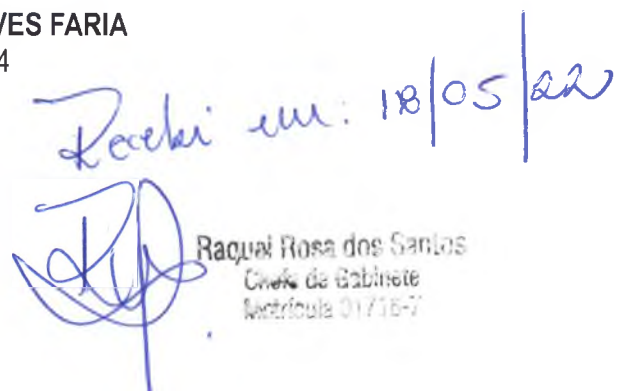 VES FARIA
4
Recebi em: 18/05/22
Raquel Rosa dos Santos
Chefe de Gabinete
Matrícula